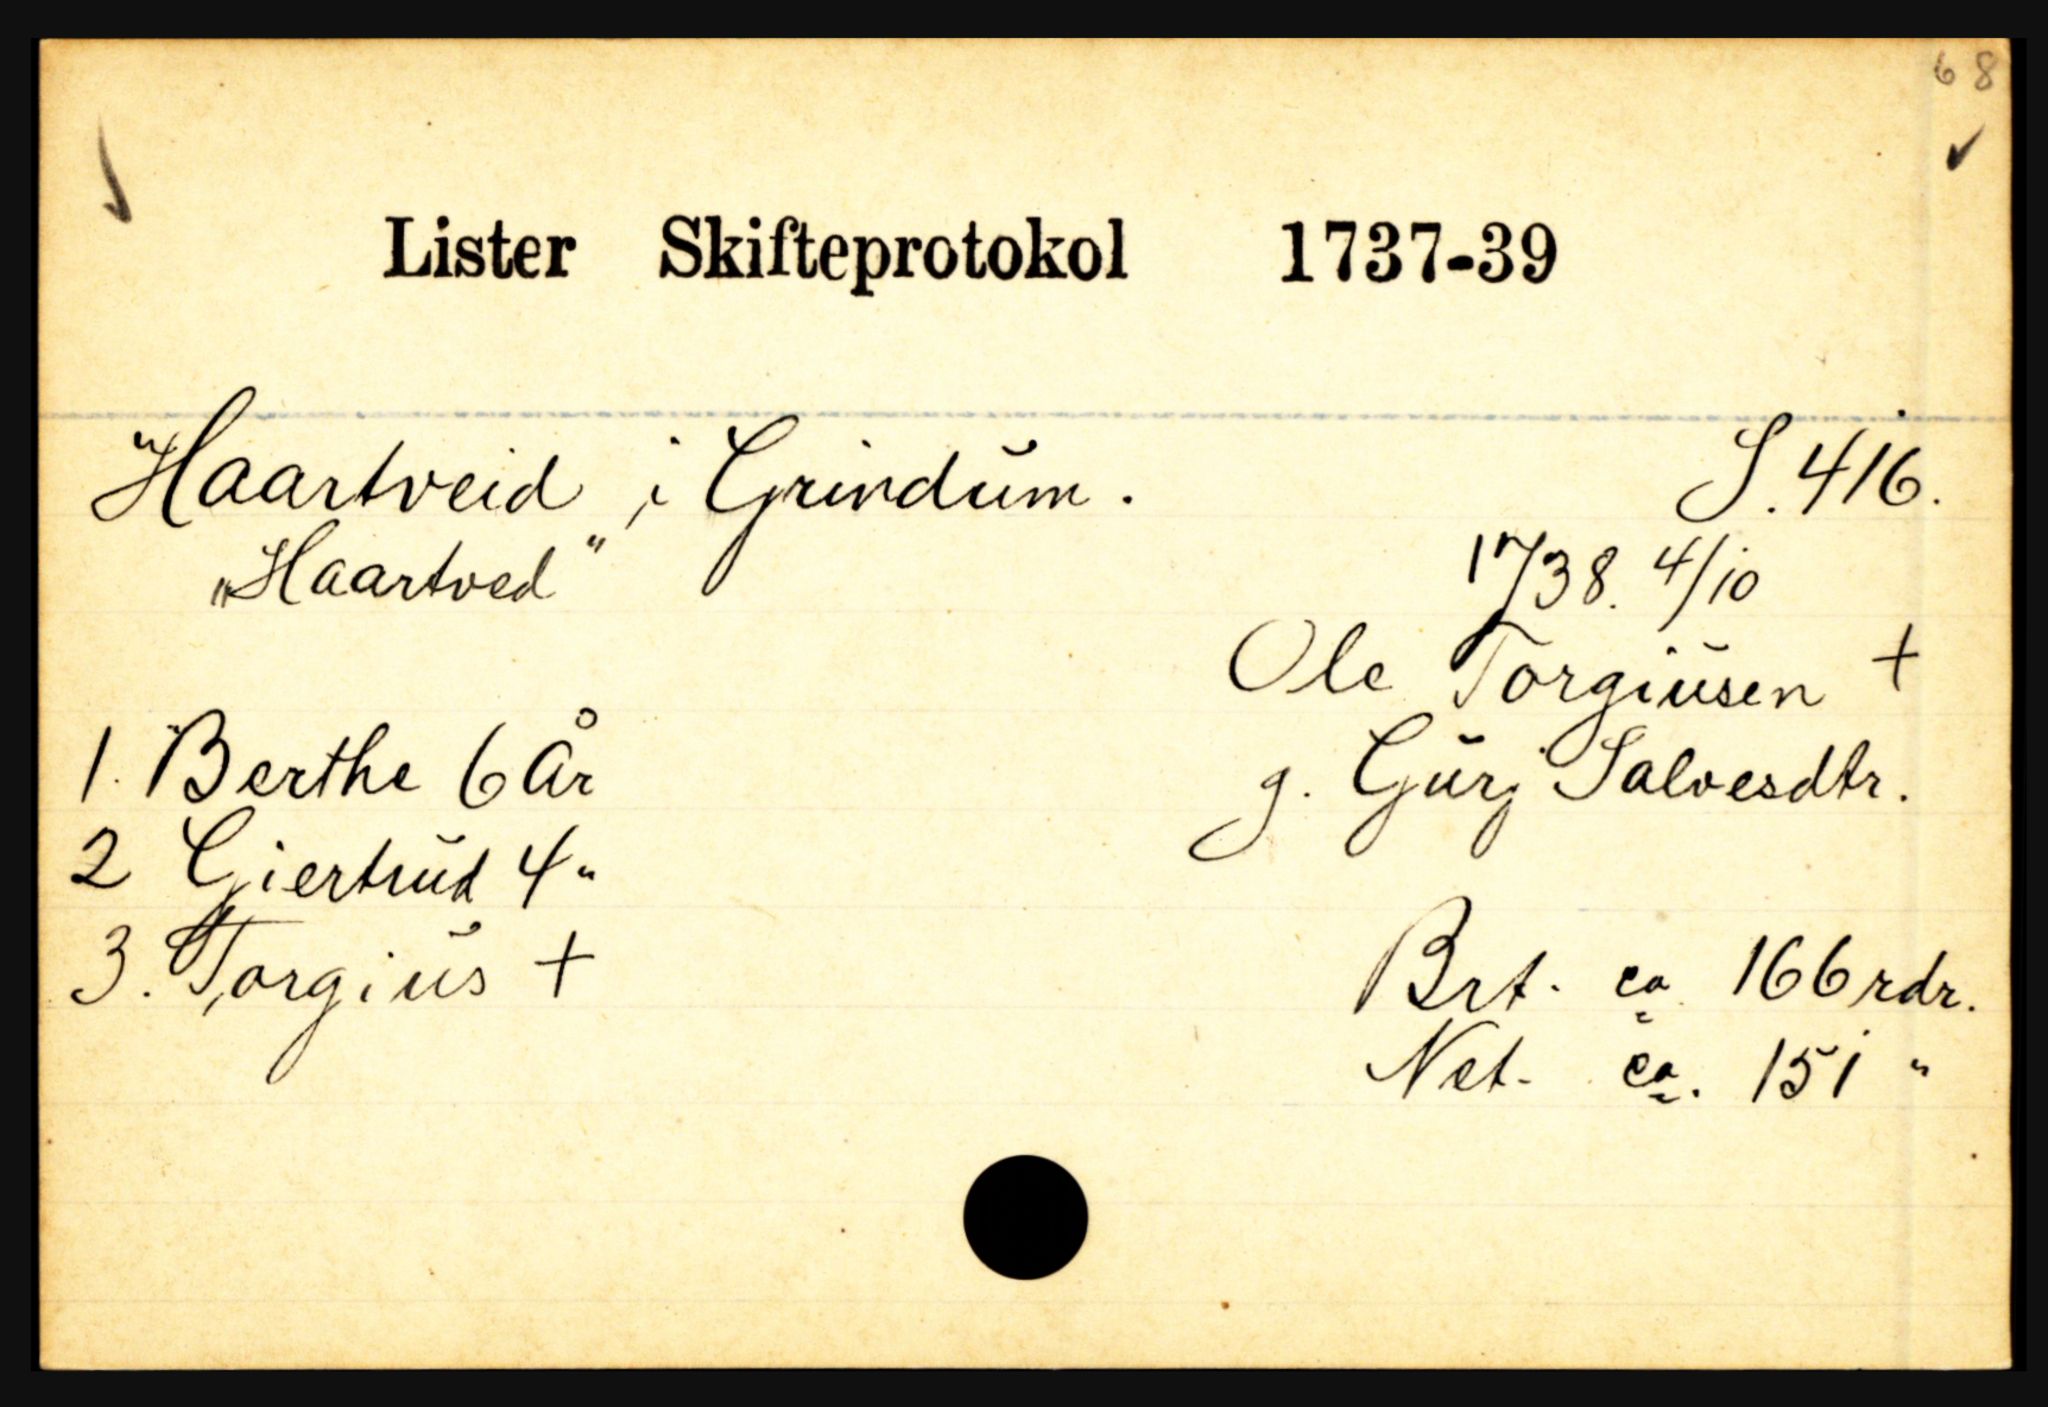 68
Lister Skifteprotokol 1737-39
Haartveid i Grindum. S. 416.
"Haartved"
1738. 4/10
Ole Torgiusen +
1. Berthe 6 År g. Guri Salvesdtr.
2 Giertrud 4 "
3. Torgius + Brt. ca 166 rdr.
Net. ca. 151 "